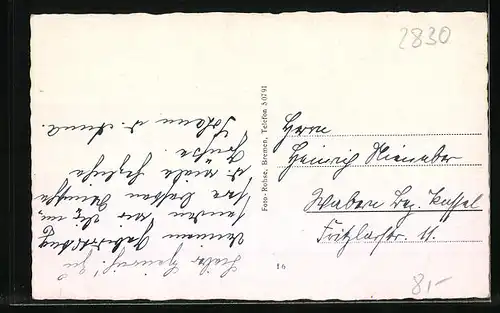 2830
Lieber Heinrich! Zu
Deinem Geburtstag
senden wir Dir
die besten Wünsche
u. viele herzliche
Grüße.
Johann u. Anna.
Foto-Rohse, Bremen, Telefon 50791
Herrn
Heinrich Nienaber
Wabern Bez. Kassel
Fritzlarstr. 11.
16
8,-